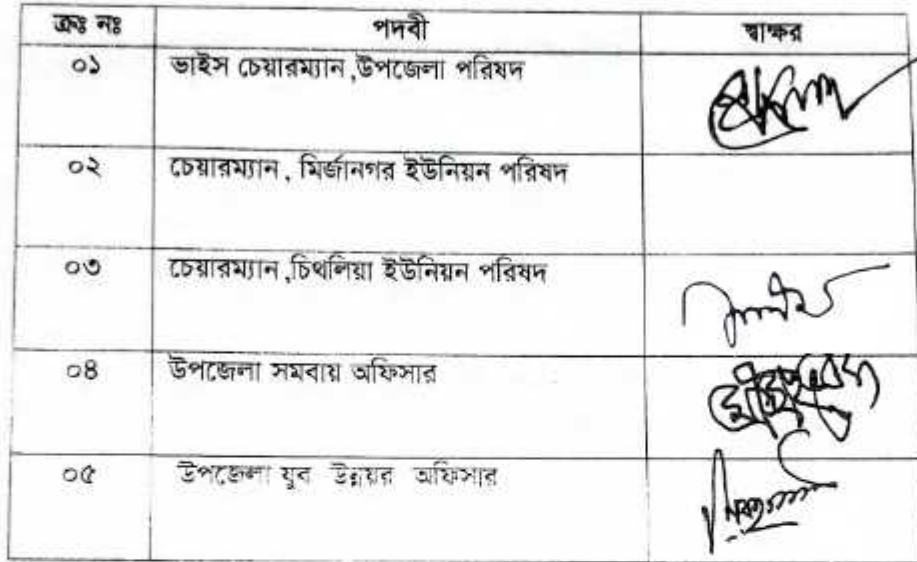 ক্রঃ নঃ পদবী স্বাক্ষর
০১ ভাইস চেয়ারম্যান ,উপজেলা পরিষদ
০২ চেয়ারম্যান , মির্জানগর ইউনিয়ন পরিষদ
০৩ চেয়ারম্যান ,চিথলিয়া ইউনিয়ন পরিষদ
০৪ উপজেলা সমবায় অফিসার
০৫ উপজেলা যুব উন্নয়র অফিসার